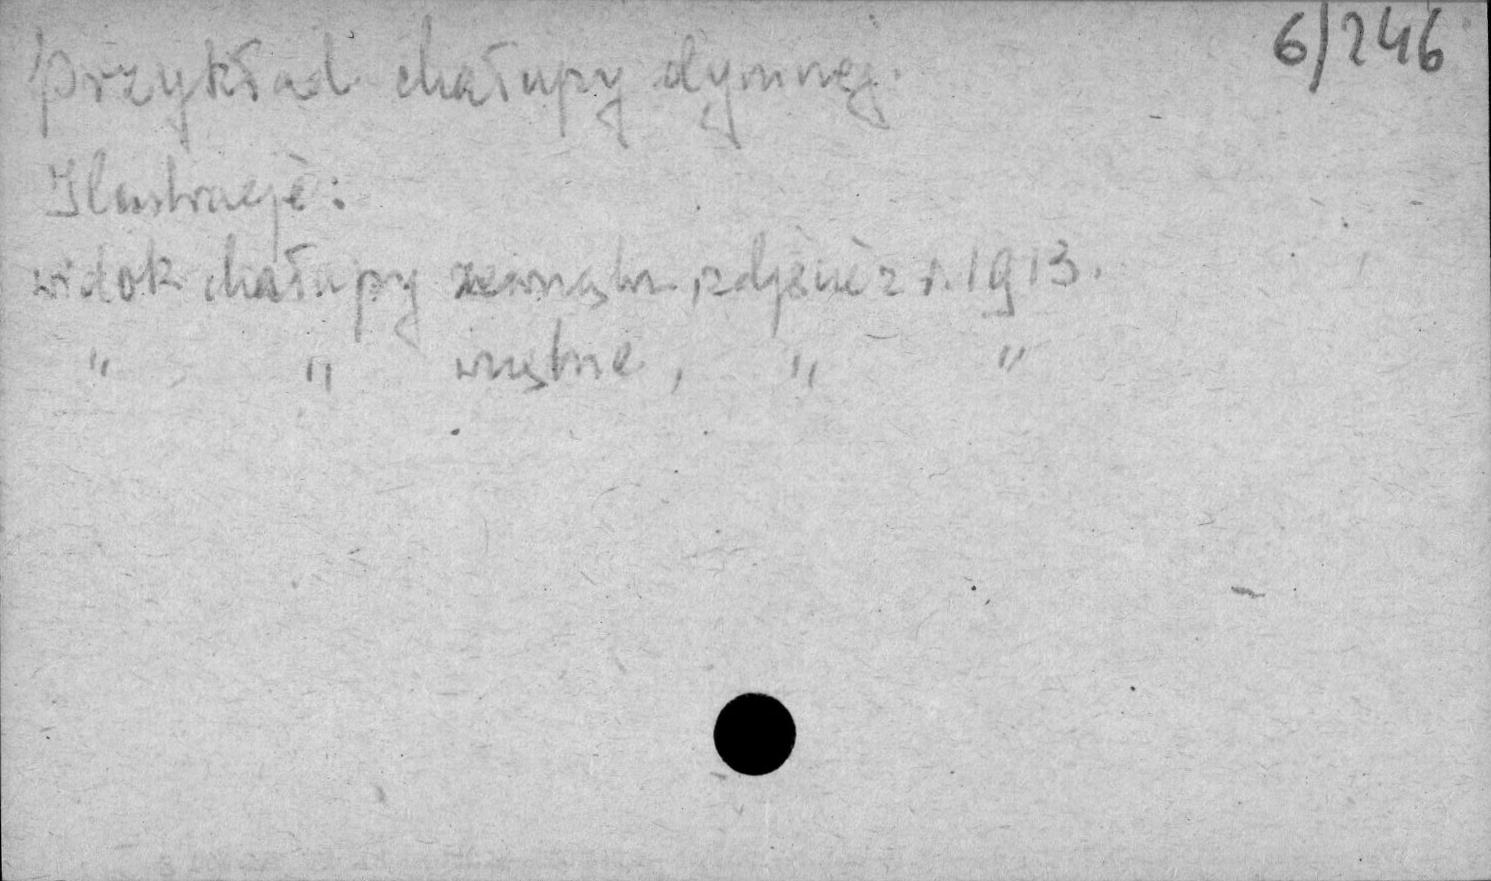 6/246
Przykład chałupy dymnej.
Ilustracje:
widok chałupy zewnątrz, zdjęcie z r. 1913.
" " wnętrze, " "